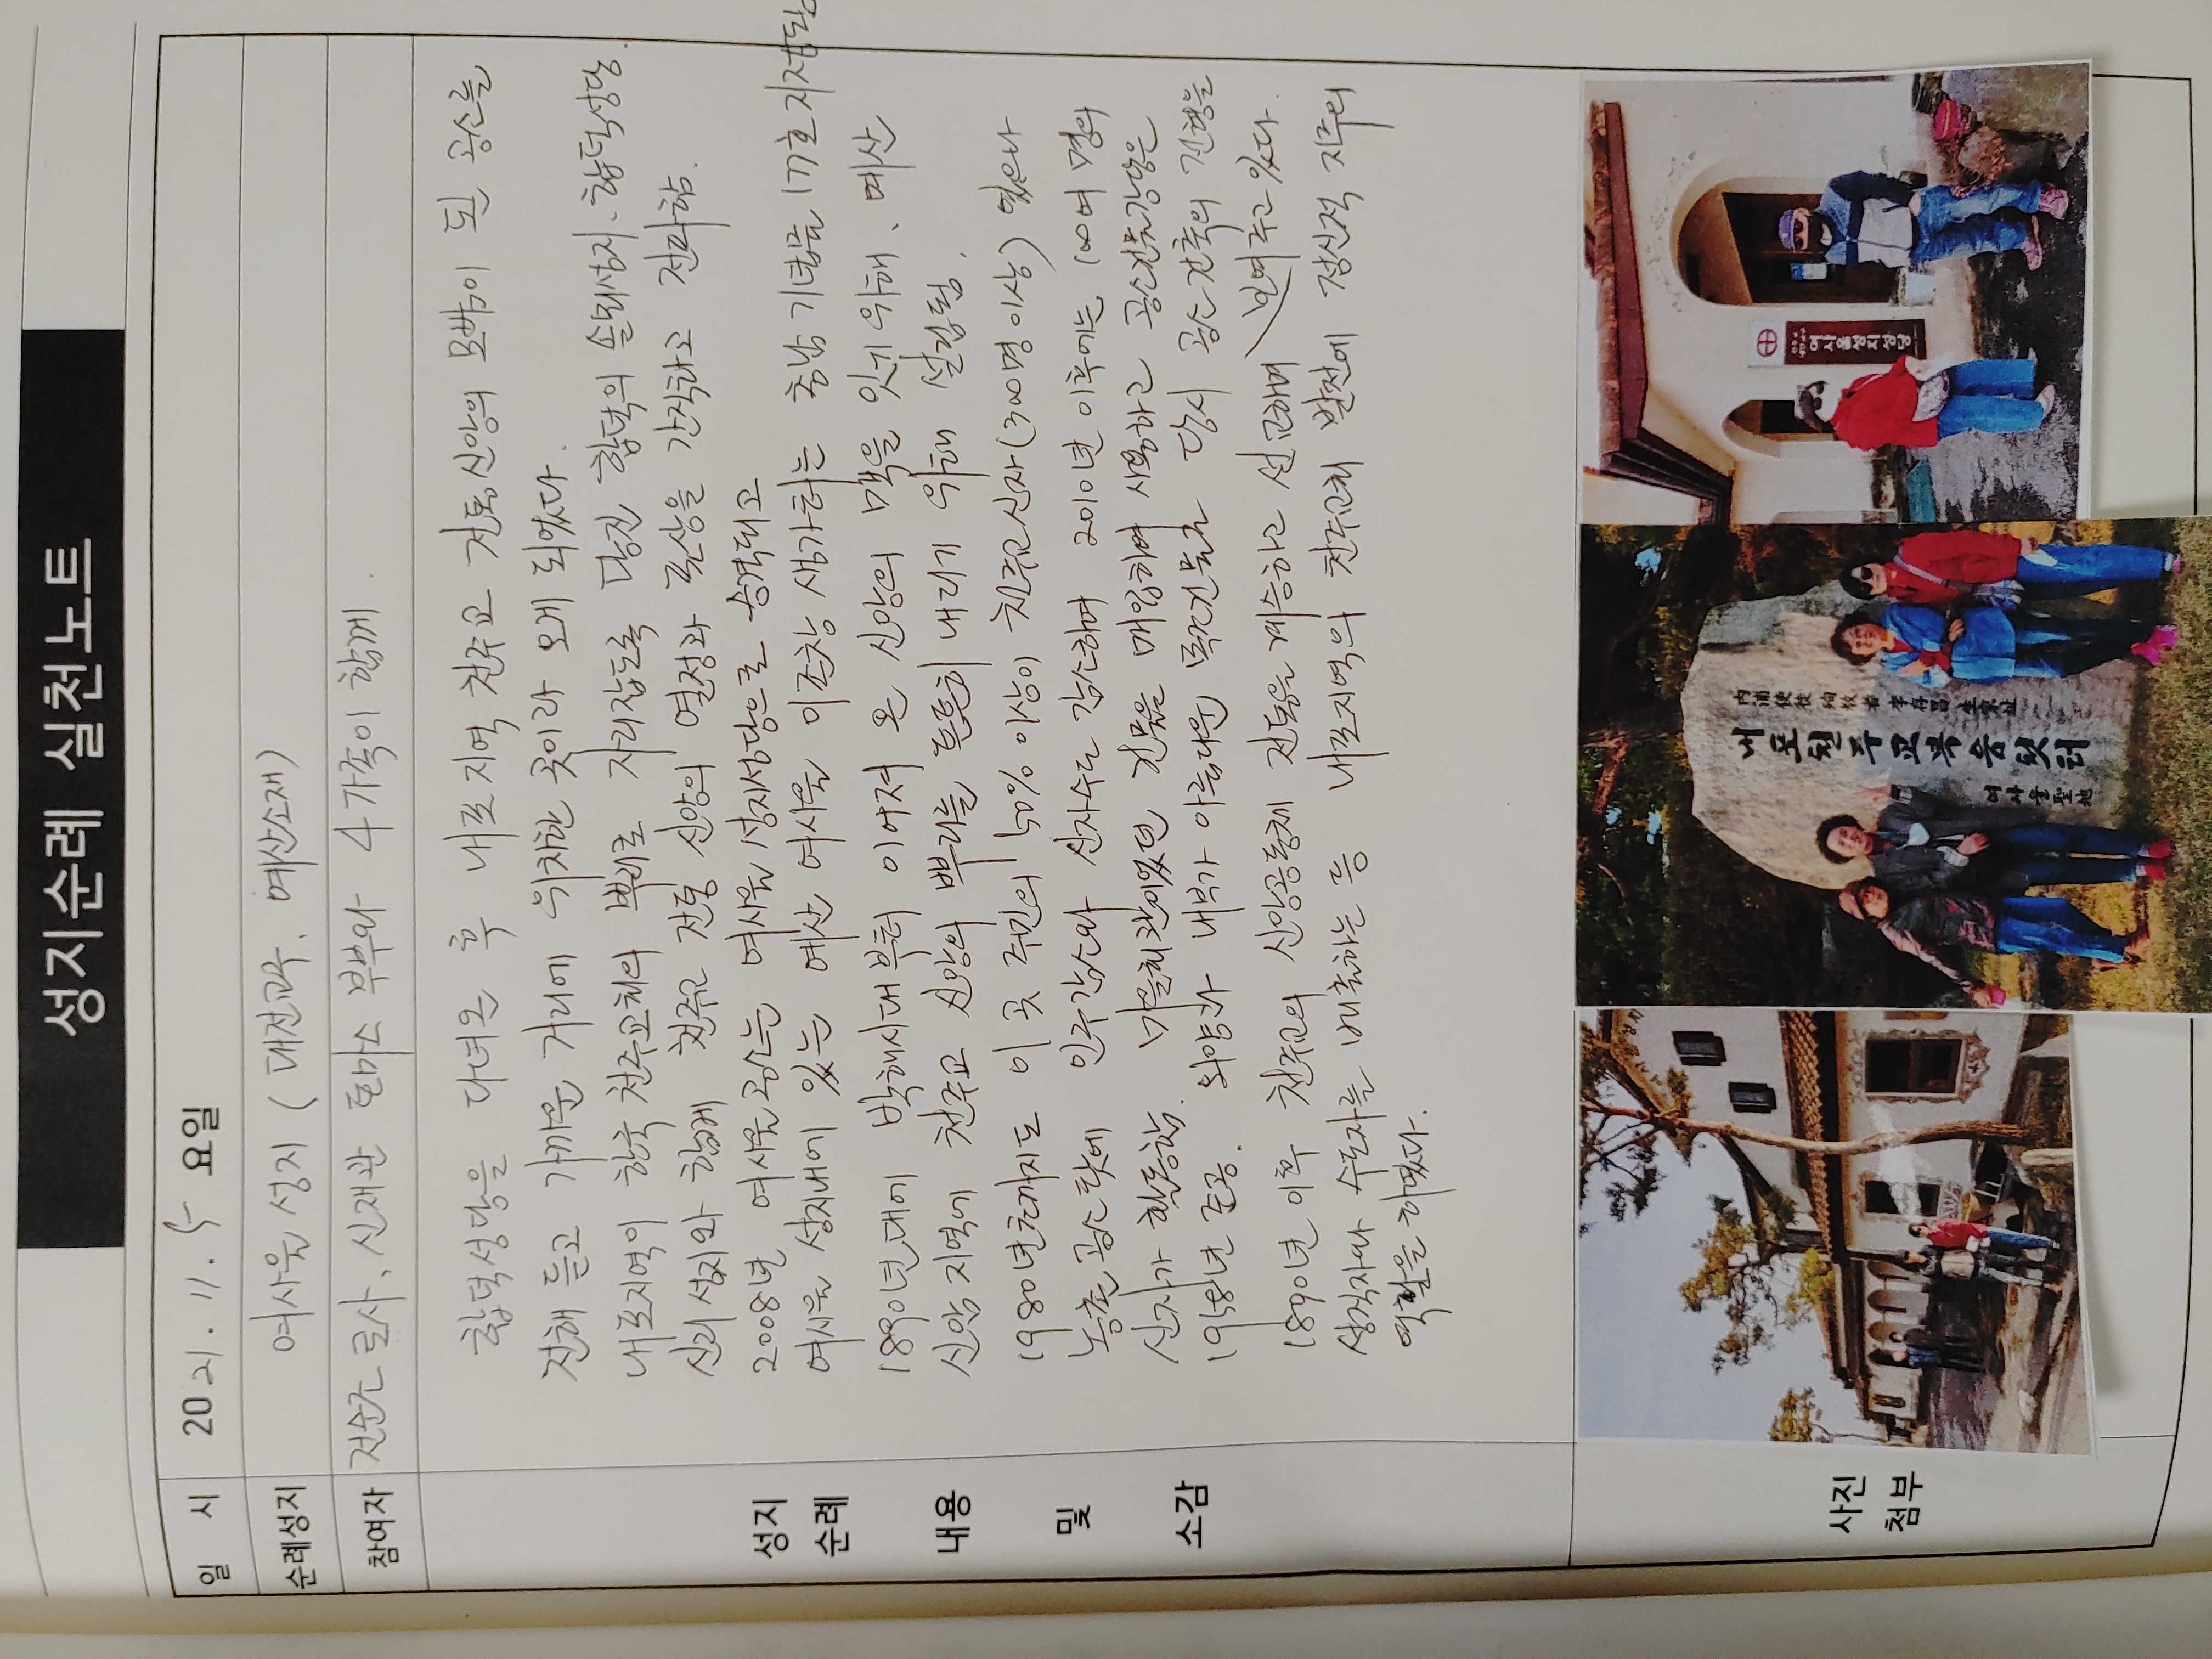 성지순례 실천노트
일 시 2021. 11. 5 요일
순례성지 여사울 성지 (대전교구, 예산소재)
참여자 전순조 로사, 신재관 토마스 부부와 4가족이 함께.
합덕성당을 다녀온 후 내포지역 천주교 전통신앙의 모빰이 된 공소를
전해 듣고 가까운 거리에 위치한 곳이라 오게 되었다.
내포지역이 한국 천주교회의 뿌리로 자리잡도록 당진 합덕의 솔뫼성지. 합덕성당.
신리 성지와 함께 천주교 전통 신앙의 열정과 표상을 간직하고 전파함.
2008년 여사울 공소는 여사울 성지성당으로 승격되고
여사울 성지내에 있는 예산 여사울 이존창 생가터는 충남 기념물 177호 지정됨
1890년대에 박해시대부터 이어져 온 신앙의 맥을 잇기 위해, 예산
신암 지역에 천주교 신앙의 뿌리를 튼튼히 내리기 위해 설립됨.
1980년초까지도 이 곳 주민의 50% 이상이 천주교신자(300명 이상) 였으나
농촌 공소 탓에 인구감소와 신자수도 감소하여 2010년 이후에는 100여 명의
신자가 활동함. 마을회관이었던 건물을 매입하여 사용하고 공소건물강당은
1958년 준공. 외양과 내부가 아름다운 목조건물로 당시 공소 건축의 전형을
보여주고 있다.
1890년 이후 천주교의 신앙공동체 전통을 계승하고 선교하며
성직자와 수도자를 배출하는 등 내포지역의 천주교회 발전에 정신적 지주의
역할을 하였다.
성지
순례
내용
및
소감
사진
첨부
사울성지
內浦使徒 殉敎者 李存昌 生家址
내포천주교복음텃터
여사울聖地
여사울성지성당